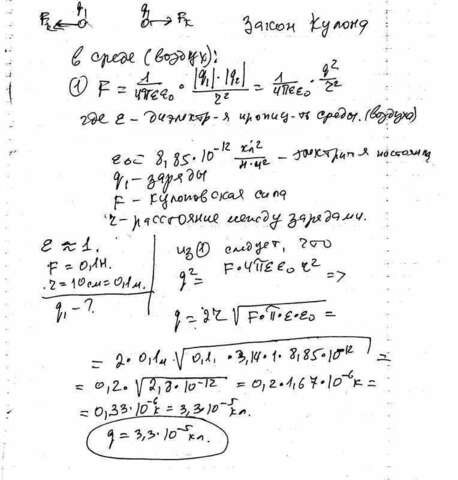 Fк q₁ q₁ Fк Закон Кулона
в среде (воздух):
① F = 1/4πεε₀ · |q₁|·|q₂|/r² = 1/4πεε₀ · q²/r²
где ε - диэлектр-я прониц-ть среды. (воздух)
ε₀ = 8,85·10⁻¹² кл²/н·м² - электрич-я постоян
q₁ - заряды
F - кулоновская сила
r - расстояние между зарядами.
ε ≈ 1.
F = 0,1н.
r = 10см = 0,1м.
q₁ - ?
из ① следует, что
q² = F·4πεε₀ r² =>
q = 2r √F·π·ε·ε₀ =
= 2·0,1м √0,1·3,14·1·8,85·10⁻¹² =
= 0,2·√2,8·10⁻¹² = 0,2·1,67·10⁻⁶к =
= 0,33·10⁻⁶к = 3,3·10⁻⁵кл.
q = 3,3·10⁻⁵ кл.